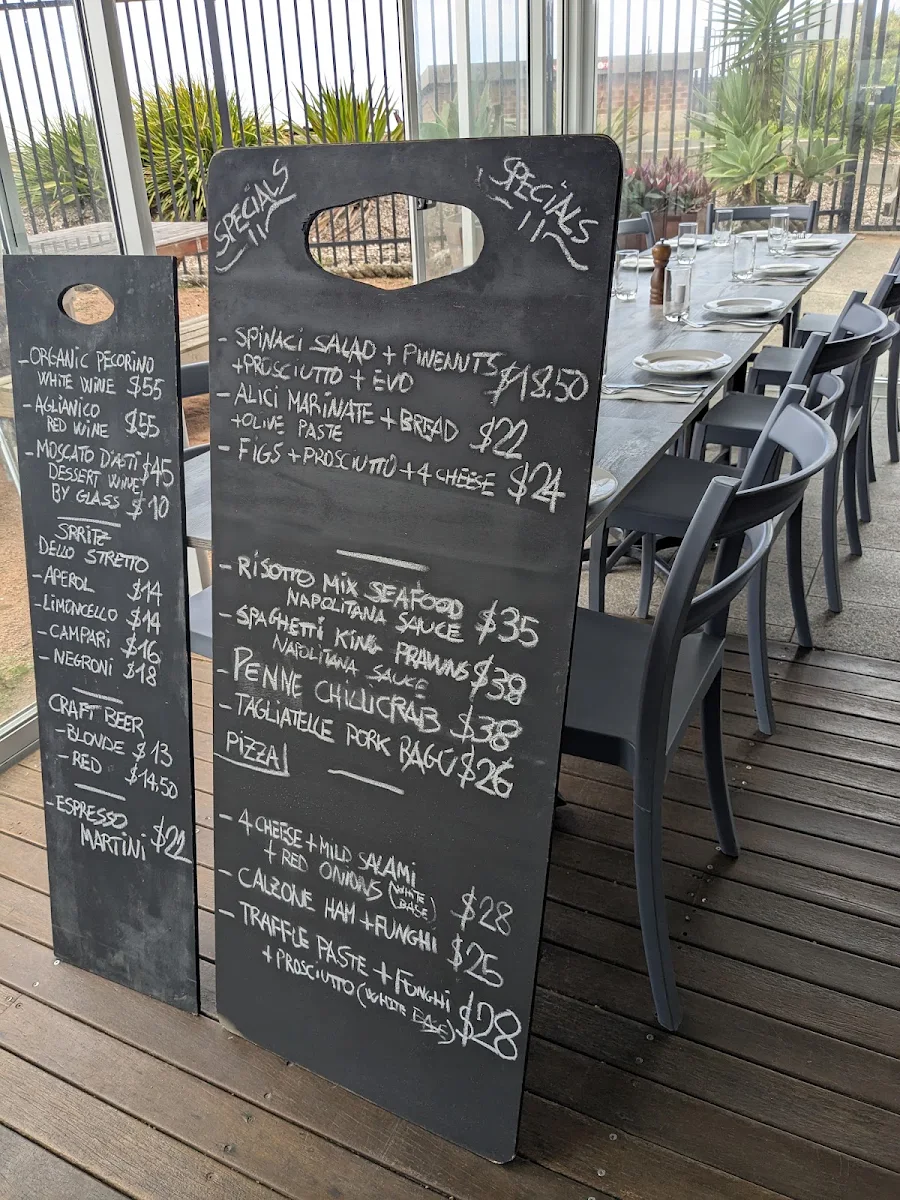 - ORGANIC PECORINO
WHITE WINE $55
- AGLIANICO
RED WINE $55
- MOSCATO D'ASTI $45
DESSERT WINE
BY GLASS $10
SPRITZ
DELLO STRETTO
- APEROL $14
- LIMONCELLO $14
- CAMPARI $16
- NEGRONI $18
CRAFT BEER
- BLONDE $13
- RED $14,50
- ESPRESSO
MARTINI $22
SPECIALS
SPECIALS
- SPINACI SALAD + PINENUTS $18,50
+PROSCIUTTO + EVO
- ALICI MARINATE + BREAD $22
+OLIVE PASTE
- FIGS + PROSCIUTTO + 4 CHEESE $24
- RISOTTO MIX SEAFOOD $35
NAPOLITANA SAUCE
- SPAGHETTI KING PRAWNS $39
NAPOLITANA SAUCE
- PENNE CHILLI CRAB $38
- TAGLIATELLE PORK RAGÚ $26
PIZZA
- 4 CHEESE + MILD SALAMI
+ RED ONIONS (WHITE BASE) $28
- CALZONE HAM + FUNGHI $25
- TRAFFLE PASTE + FUNGHI
+ PROSCIUTTO (WHITE BASE) $28